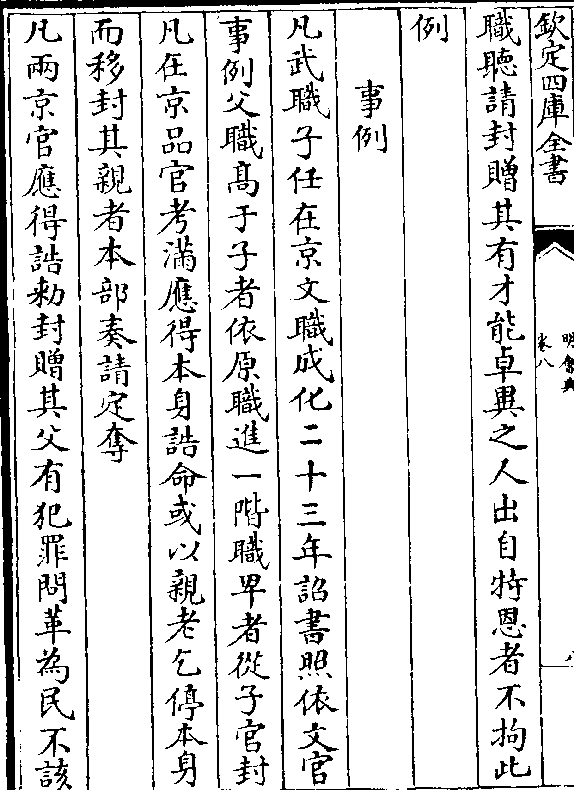 欽定四庫全書
明會典
卷八
八
職聽請封贈其有才能卓異之人出自特恩者不拘此
例
事例
凡武職子任在京文職成化二十三年詔書照依文官
事例父職髙于子者依原職進一階職卑者從子官封
凡在京品官考滿應得本身誥命或以親老乞停本身
而移封其親者本部奏請定奪
凡兩京官應得誥勅封贈其父有犯罪問革為民不該